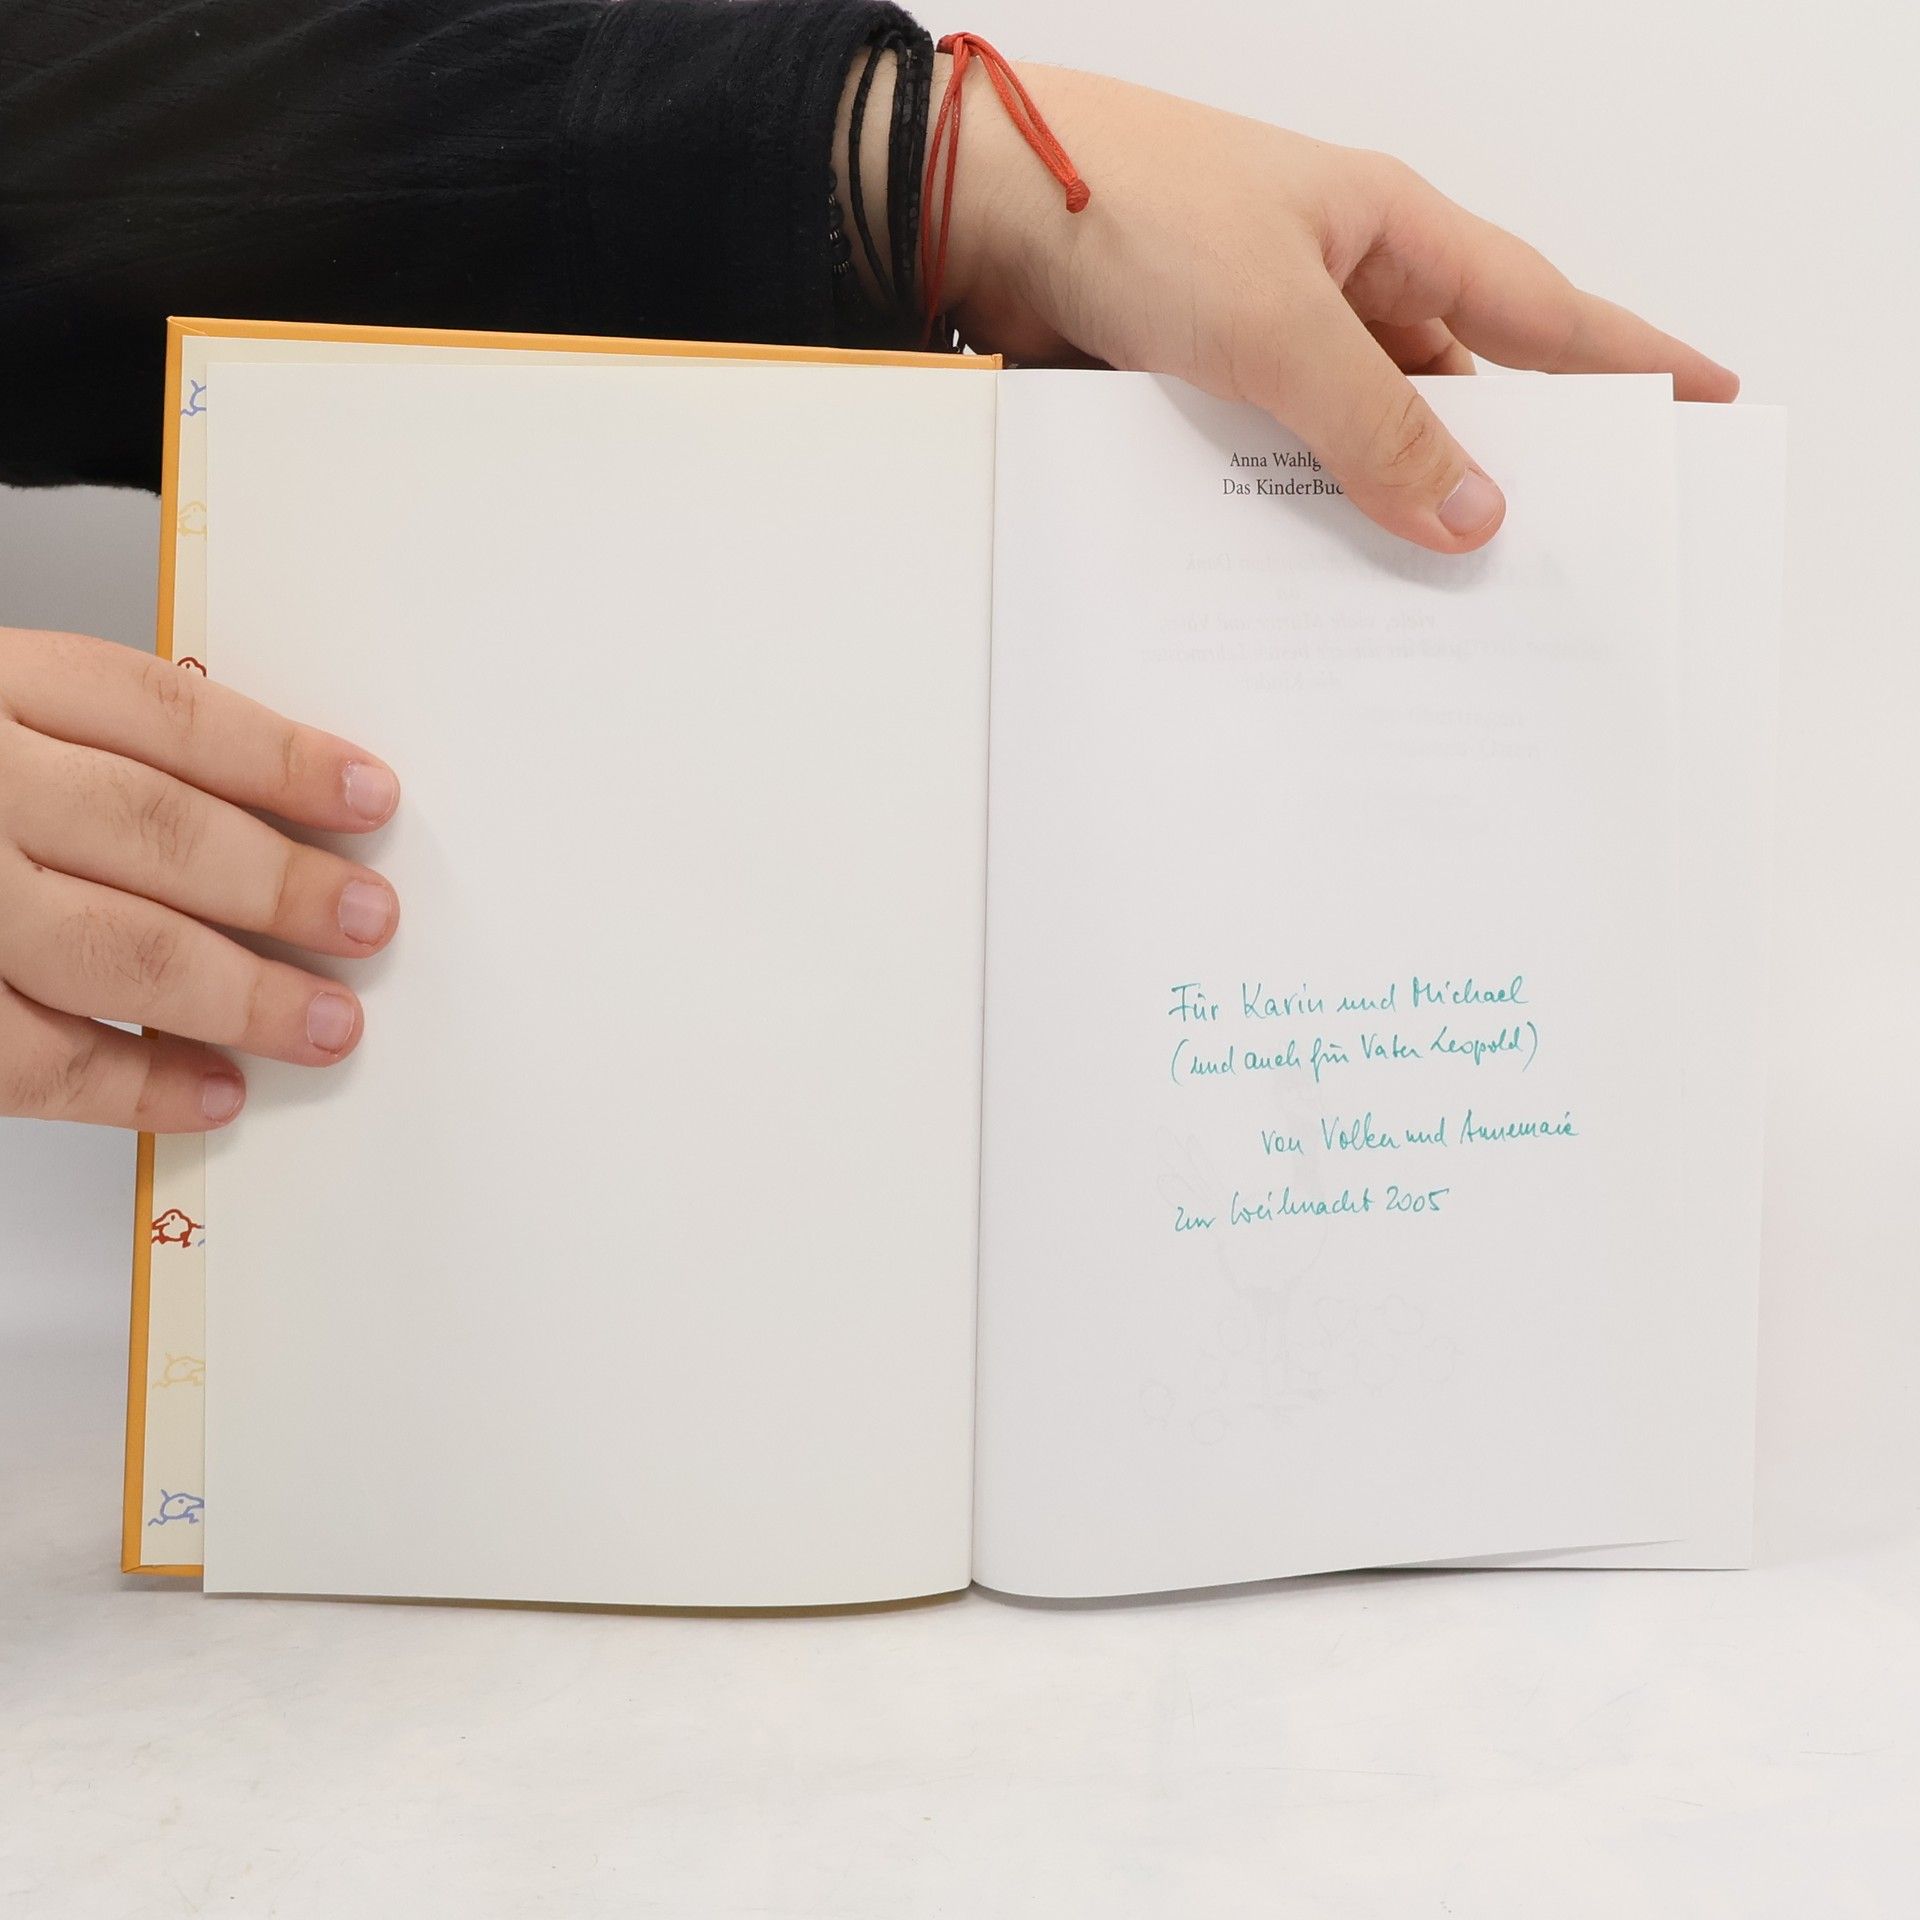 Anna Wahlg
Das KinderBuc
Für Karin und Michael
(und auch für Vater Leopold)
von Volker und Annemarie
zur Weihnacht 2005